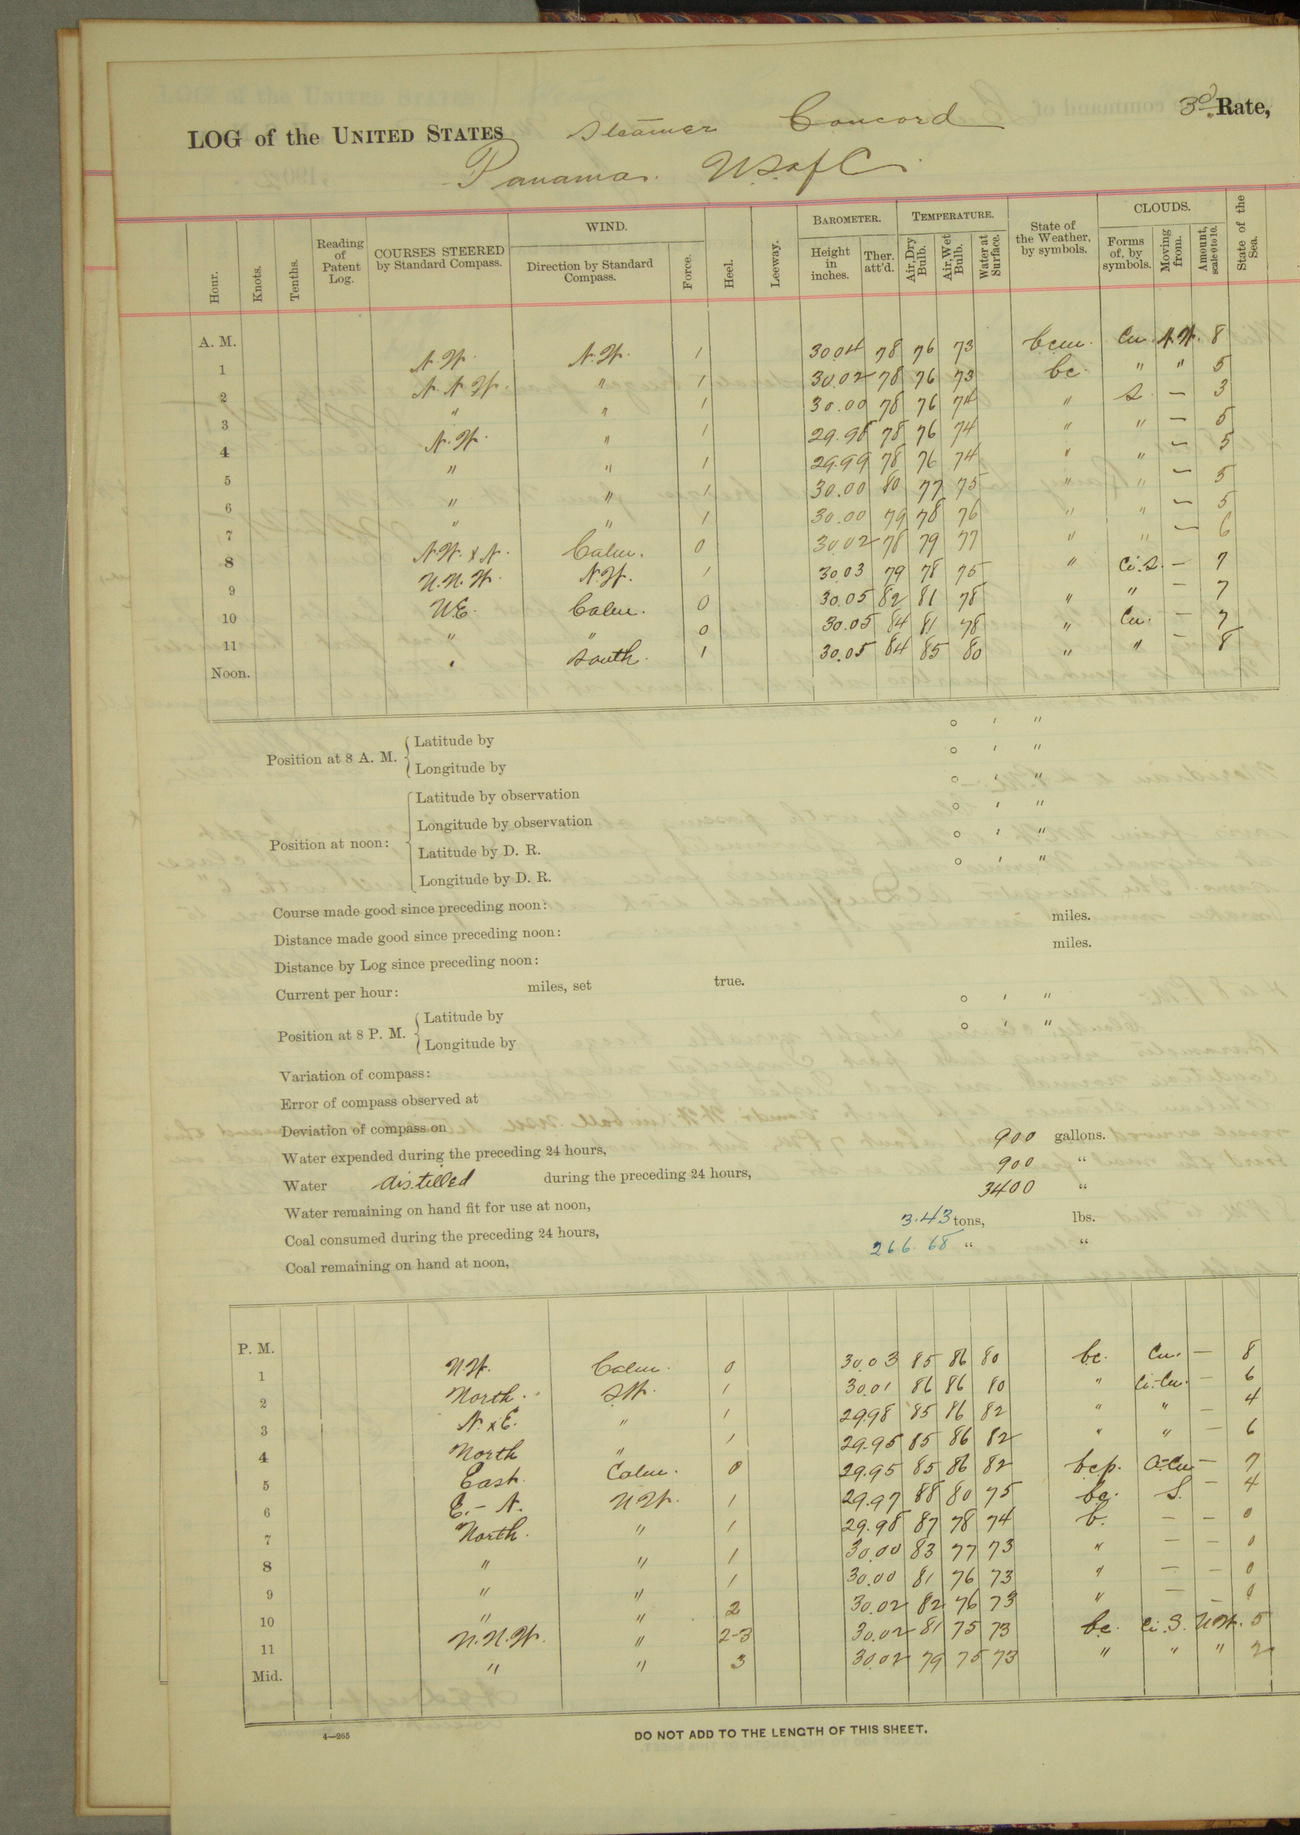 LOG of the UNITED STATES Steamer Concord 3d Rate,
Panama. U.S. of C.
Hour. Knots. Tenths. Reading of Patent Log. COURSES STEERED by Standard Compass. WIND. Direction by Standard Compass. Force. Heel. Leeway. BAROMETER. Height in inches. Ther. att'd. TEMPERATURE. Air, Dry Bulb. Air, Wet Bulb. Water at Surface. State of the Weather, by symbols. CLOUDS. Forms of, by symbols. Moving from. Amount, scale 0 to 10. State of the Sea.
A. M.
1 N.W. N.W. 1 30.04 78 76 73 bcm. Cu. N.W. 8
2 N.N.W. " 1 30.02 78 76 73 bc. " " 5
3 " " 1 30.00 78 76 74 " S. — 3
4 N.W. " 1 29.98 78 76 74 " " — 5
5 " " 1 29.99 78 76 74 " " — 5
6 " " 1 30.00 80 77 75 " " — 5
7 " " 1 30.00 79 78 76 " " — 5
8 N.W. x N. Calm. 0 30.02 78 79 77 " " — 6
9 N.N.W. N.W. 1 30.03 79 78 75 " Ci.S. — 7
10 N.E. Calm. 0 30.05 82 81 78 " " — 7
11 " " 0 30.05 84 81 78 " Cu. — 7
Noon. " South. 1 30.05 84 85 80 " " — 8
Position at 8 A. M. Latitude by ° ' "
Longitude by ° ' "
Position at noon: Latitude by observation ° ' "
Longitude by observation ° ' "
Latitude by D. R. ° ' "
Longitude by D. R. ° ' "
Course made good since preceding noon:
Distance made good since preceding noon: miles.
Distance by Log since preceding noon: miles.
Current per hour: miles, set true.
Position at 8 P. M. Latitude by ° ' "
Longitude by ° ' "
Variation of compass:
Error of compass observed at
Deviation of compass on
Water expended during the preceding 24 hours, 900 gallons.
Water distilled during the preceding 24 hours, 900 "
Water remaining on hand fit for use at noon, 3400 "
Coal consumed during the preceding 24 hours, 3.43 tons, lbs.
Coal remaining on hand at noon, 266.68 " "
P. M.
1 N.W. Calm. 0 30.03 85 86 80 bc. Cu. — 8
2 North. S.W. 1 30.01 86 86 80 " Ci.-Cu. — 6
3 N. x E. " 1 29.98 85 86 82 " " — 4
4 North " 1 29.95 85 86 82 " " — 6
5 East. Calm. 0 29.95 85 86 82 bcp. A-Cu — 7
6 E. - N. N.W. 1 29.97 88 80 75 bc. S. — 4
7 North. " 1 29.98 87 78 74 b. — — 0
8 " " 1 30.00 83 77 73 " — — 0
9 " " 1 30.00 81 76 73 " — — 0
10 " " 2 30.02 82 76 73 " — — 0
11 N.N.W. " 2-3 30.02 81 75 73 bc. Ci.S. N.W. 5
Mid. " " 3 30.02 79 75 73 " " " 2
4—265
DO NOT ADD TO THE LENGTH OF THIS SHEET.